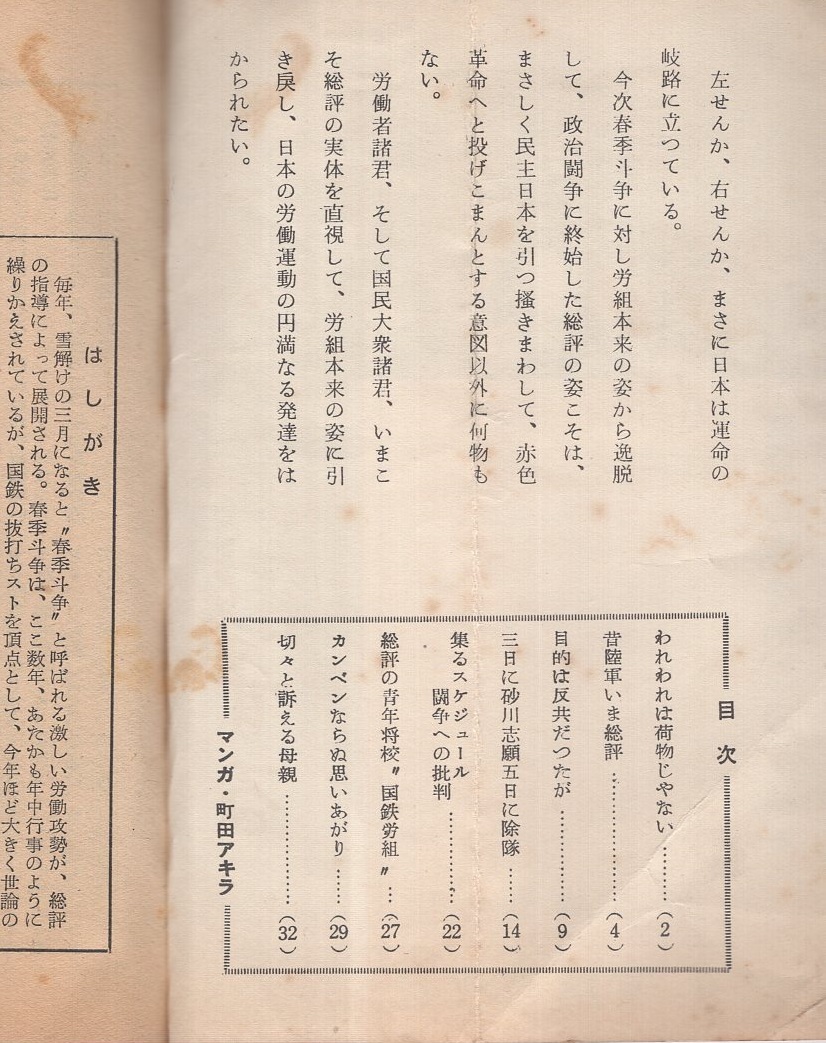 左せんか、右せんか、まさに日本は運命の
岐路に立つている。
今次春季斗争に対し労組本来の姿から逸脱
して、政治闘争に終始した総評の姿こそは、
まさしく民主日本を引つ掻きまわして、赤色
革命へと投げこまんとする意図以外に何物も
ない。
労働者諸君、そして国民大衆諸君、いまこ
そ総評の実体を直視して、労組本来の姿に引
き戻し、日本の労働運動の円満なる発達をは
かられたい。
目次
われわれは荷物じやない…………(2)
昔陸軍いま総評…………(4)
目的は反共だつたが…………(9)
三日に砂川志願五日に除隊……(14)
集るスケジュール
闘争への批判…………(22)
総評の青年将校〝国鉄労組〟…(27)
カンベンならぬ思いあがり……(29)
切々と訴える母親…………(32)
マンガ・町田アキラ
はしがき
毎年、雪解けの三月になると〝春季斗争〟と呼ばれる激しい労働攻勢が、総評
の指導によって展開される。春季斗争は、ここ数年、あたかも年中行事のように
繰りかえされているが、国鉄の抜打ちストを頂点として、今年ほど大きく世論の